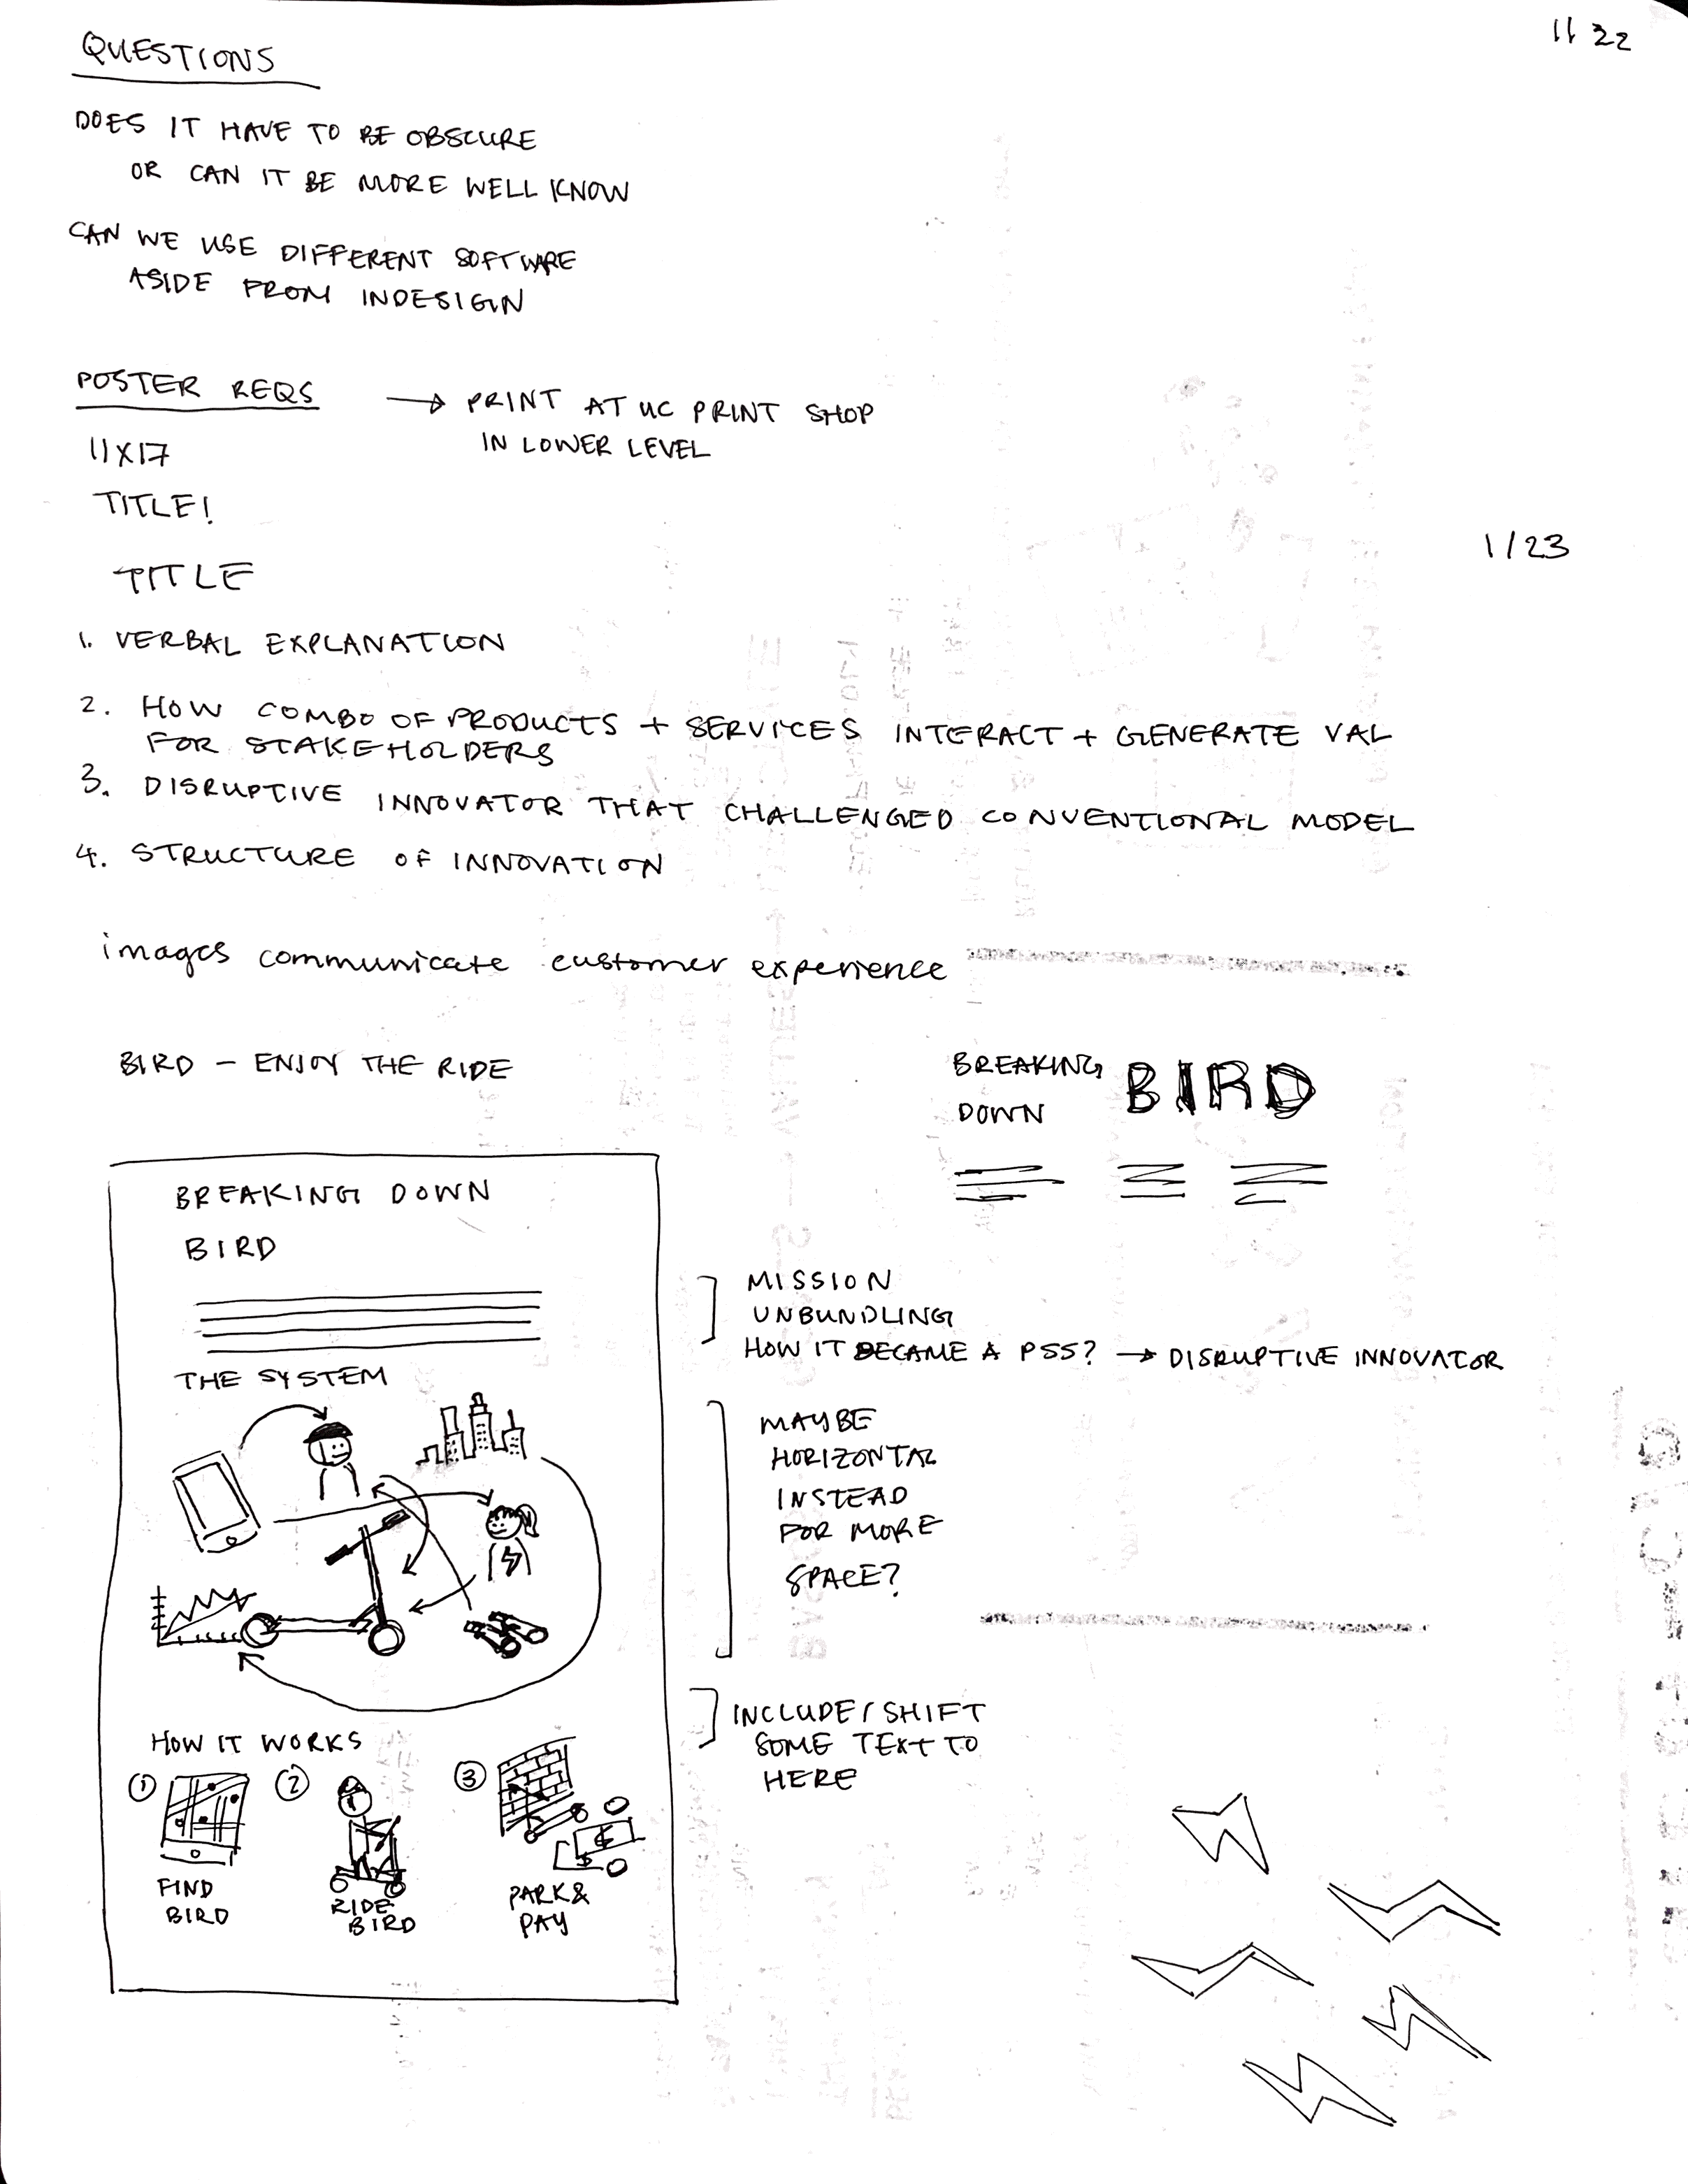 11 22
QUESTIONS
DOES IT HAVE TO BE OBSCURE
OR CAN IT BE MORE WELL KNOW
CAN WE USE DIFFERENT SOFTWARE
ASIDE FROM INDESIGN
POSTER REQS → PRINT AT UC PRINT SHOP
IN LOWER LEVEL
11X17
TITLE!
1/23
TITLE
1. VERBAL EXPLANATION
2. HOW COMBO OF PRODUCTS + SERVICES INTERACT + GENERATE VAL
FOR STAKEHOLDERS
3. DISRUPTIVE INNOVATOR THAT CHALLENGED CONVENTIONAL MODEL
4. STRUCTURE OF INNOVATION
images communicate customer experience
BIRD - ENJOY THE RIDE
BREAKING BIRD
DOWN
BREAKING DOWN
BIRD
MISSION
UNBUNDLING
HOW IT BECAME A PSS? → DISRUPTIVE INNOVATOR
THE SYSTEM
MAYBE
HORIZONTAL
INSTEAD
FOR MORE
SPACE?
INCLUDE/SHIFT
SOME TEXT TO
HERE
HOW IT WORKS
1 2 3
FIND
BIRD
RIDE
BIRD
PARK &
PAY